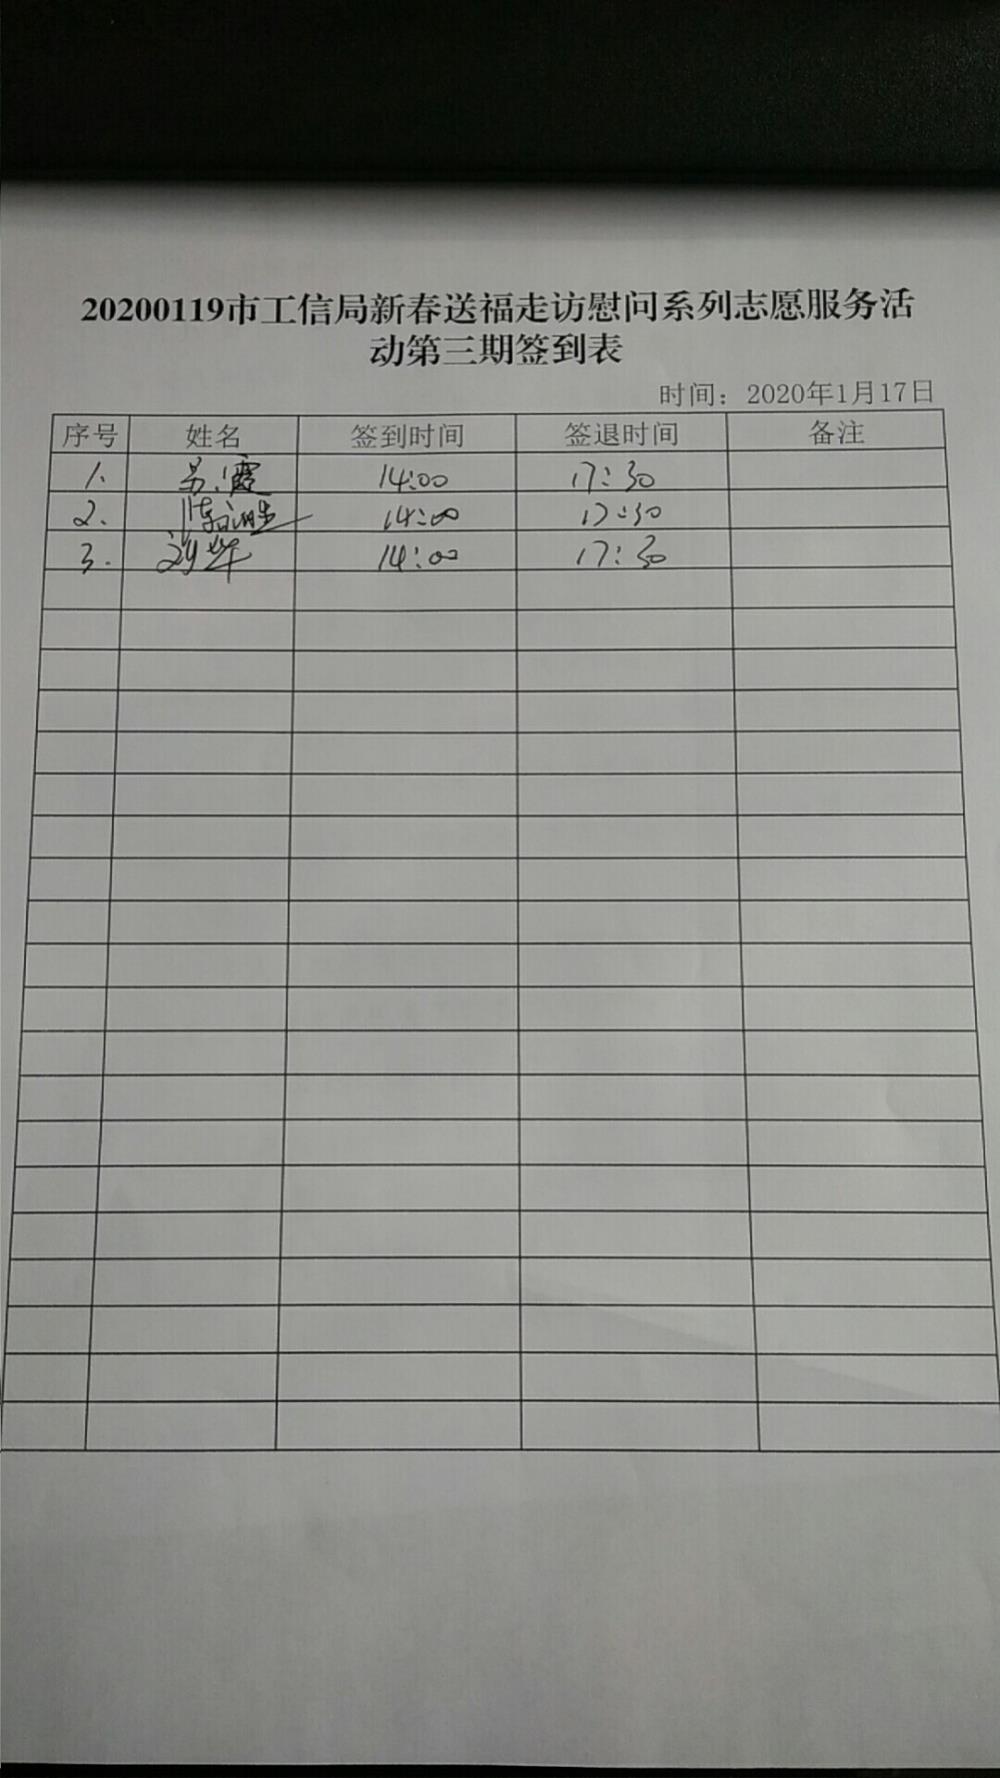 20200119市工信局新春送福走访慰问系列志愿服务活
动第三期签到表
时间：2020年1月17日
序号 姓名 签到时间 签退时间 备注
1. 吴霞 14:00 17:30
2. 14:00 17:30
3. 刘华 14:00 17:30